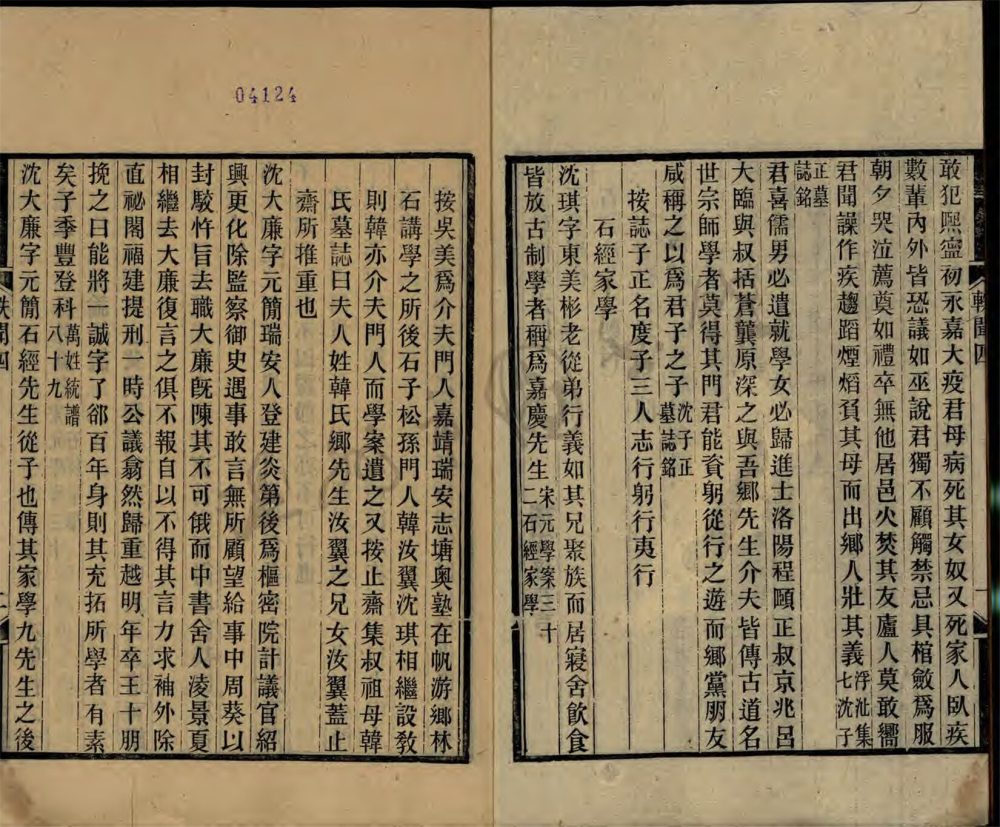 敢犯熙寧初永嘉大疫君母病死其女奴又死家人臥疾
數輩內外皆恐議如巫說君獨不顧觸禁忌具棺斂爲服
朝夕哭泣薦奠如禮卒無他居邑火焚其友廬人莫敢嚮
君聞譟作疾趨蹈煙熖負其母而出鄉人壯其義浮沚集七沈子
正墓誌銘
君喜儒男必遣就學女必歸進士洛陽程頤正叔京兆呂
大臨與叔括蒼龔原深之與吾鄉先生介夫皆傳古道名
世宗師學者莫得其門君能資躬從行之遊而鄉黨朋友
咸稱之以爲君子之子沈子正墓誌銘
按誌子正名度子三人志行躬行夷行
石經家學
沈琪字東美彬老從弟行義如其兄聚族而居寢舍飮食
皆放古制學者稱爲嘉慶先生宋元學案三十二石經家學
軼聞四
一
04124
按吳美爲介夫門人嘉靖瑞安志塘奧塾在帆游鄉林
石講學之所後石子松孫門人韓汝翼沈琪相繼設敎
則韓亦介夫門人而學案遺之又按止齋集叔祖母韓
氏墓誌曰夫人姓韓氏鄉先生汝翼之兄女汝翼蓋止
齋所推重也
沈大廉字元簡瑞安人登建炎第後爲樞密院計議官紹
興更化除監察御史遇事敢言無所顧望給事中周葵以
封駮忤旨去職大廉旣陳其不可俄而中書舍人淩景夏
相繼去大廉復言之俱不報自以不得其言力求補外除
直祕閣福建提刑一時公議翕然歸重越明年卒王十朋
挽之曰能將一誠字了郤百年身則其充拓所學者有素
矣子季豐登科萬姓統譜八十九
沈大廉字元簡石經先生從子也傳其家學九先生之後
軼聞四
二